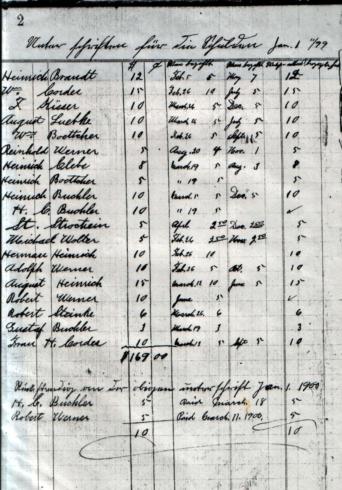 2
Unterschriften für die Schulden Jan. 1 1/99
Heinrich Brandt 12 Feb. 5 5 May 7 12
Wm. Corder 15 Feb. 26 10 July 5 15
F. Kieser 10 March 26 5 Dec. 5 10
August Luetke 10 March 12 5 July 5 10
Wm. Boettcher 10 Feb. 26 5 5 10
Reinhold Werner 5 Aug. 20 4 Nov. 1 5
Heinrich 8 March 19 5 Aug. 3 8
Heinrich Boettcher 5 " 19 5
Heinrich Buchler 10 March 5 5 Dec. 5 10
H. C. Buchler 10 " 19 5 ✓
St. Strohein 5 April 2.50 Dec. 2.50 5
Michael Wolter 5 Feb. 26 2.50 Nov. 2.50 5
Herman Heinrich 10 Feb. 26 10 10
Adolph Werner 10 Feb. 26 5 Oct. 5 10
August Heinrich 15 March 12 10 June 5 15
Robert Werner 10 June 5 ✓
Robert Steinke 6 March 26 6 6
Gustaf Buchler 3 March 19 3 3
Frau H. Corder 10 March 5 5 10
$169 00
von der obigen Unterschrift Jan. 1. 1900
H. C. Buchler 5 Paid March 18 5
Robert Werner 5 Paid March 11. 1900. 5
10 10